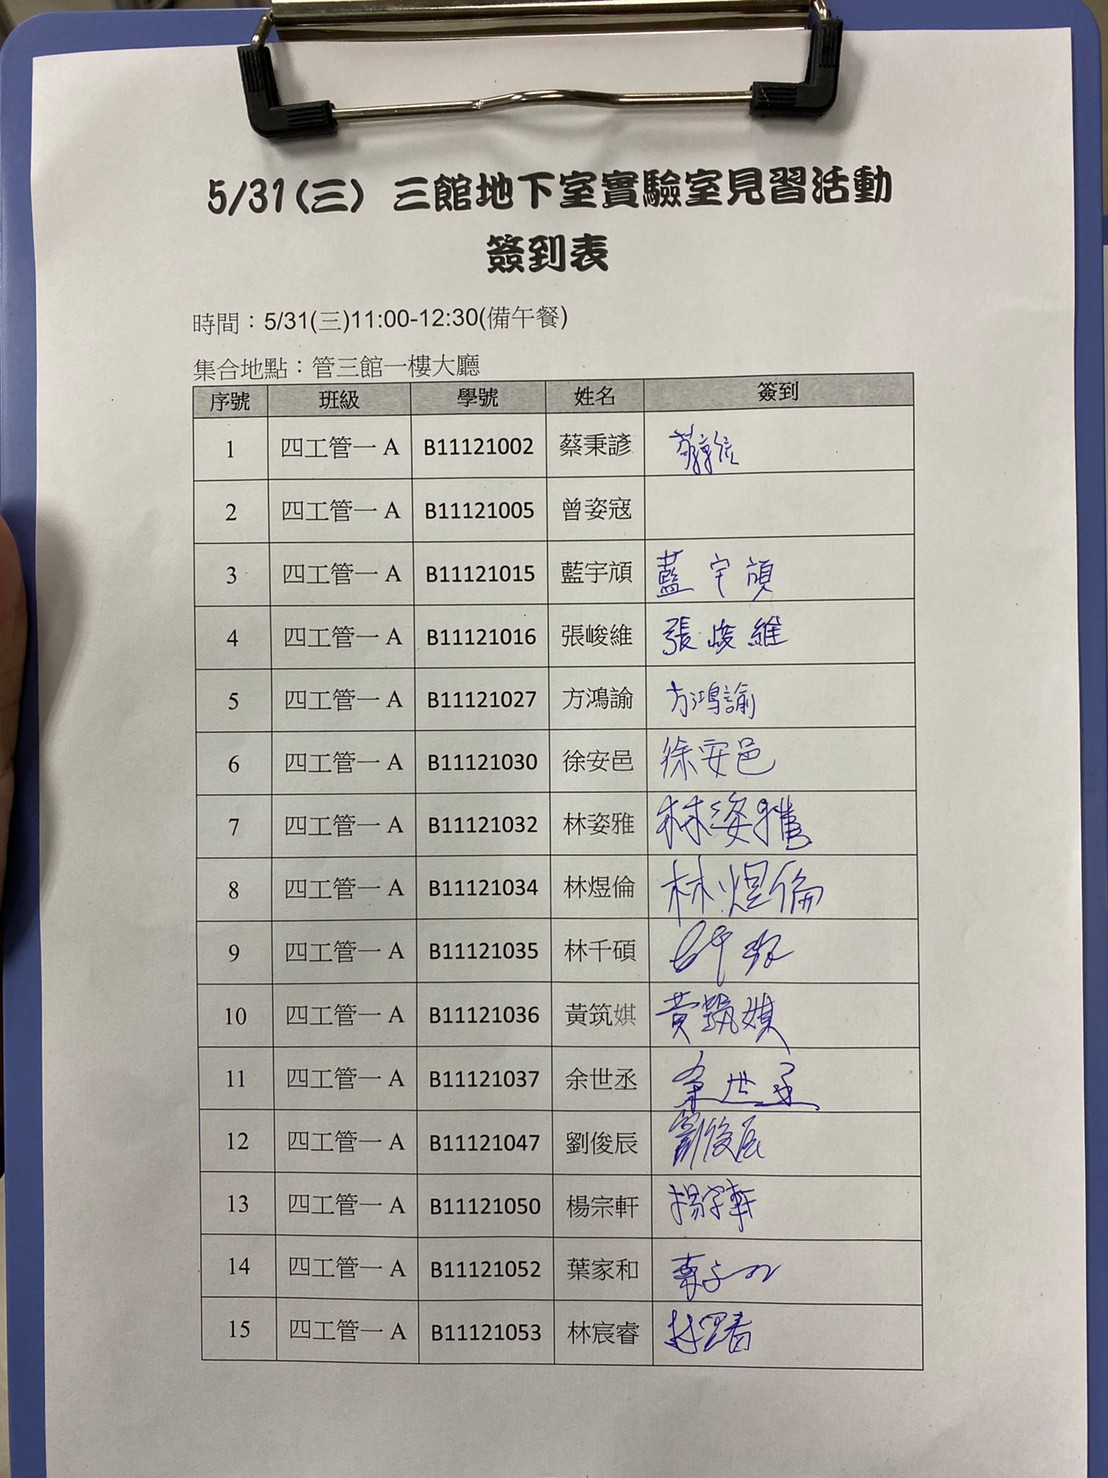 5/31(三) 三館地下室實驗室見習活動
簽到表
時間：5/31(三)11:00-12:30(備午餐)
集合地點：管三館一樓大廳
序號 班級 學號 姓名 簽到
1 四工管一 A B11121002 蔡秉諺
2 四工管一 A B11121005 曾姿寇
3 四工管一 A B11121015 藍宇頎 藍宇頎
4 四工管一 A B11121016 張峻維 張峻維
5 四工管一 A B11121027 方鴻諭 方鴻諭
6 四工管一 A B11121030 徐安邑 徐安邑
7 四工管一 A B11121032 林姿雅 林姿雅
8 四工管一 A B11121034 林煜倫 林煜倫
9 四工管一 A B11121035 林千碩
10 四工管一 A B11121036 黃筑娸 黃筑娸
11 四工管一 A B11121037 余世丞 余世丞
12 四工管一 A B11121047 劉俊辰 劉俊辰
13 四工管一 A B11121050 楊宗軒 楊宗軒
14 四工管一 A B11121052 葉家和
15 四工管一 A B11121053 林宸睿